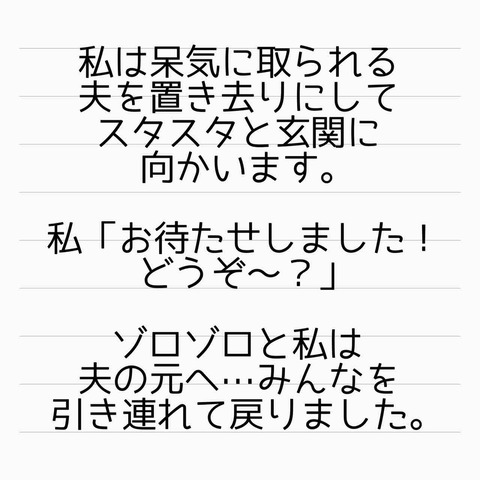 私は呆気に取られる
夫を置き去りにして
スタスタと玄関に
向かいます。
私「お待たせしました！
どうぞ〜？」
ゾロゾロと私は
夫の元へ…みんなを
引き連れて戻りました。